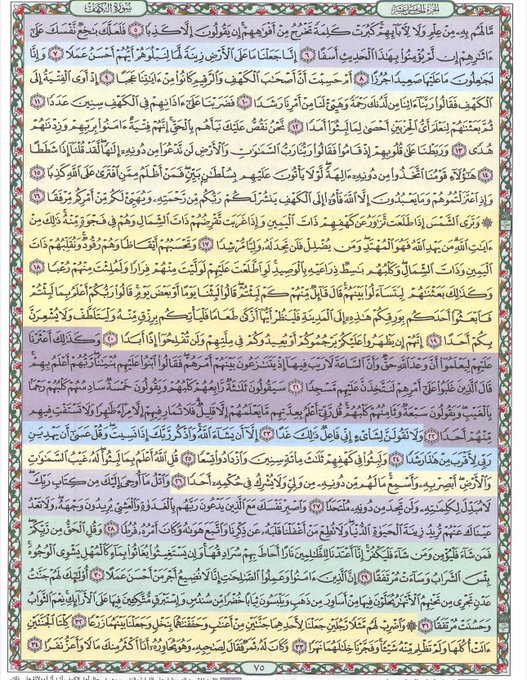 الجزء الخامس عشر
سورة الكهف
مَّا لَهُم بِهِۦ مِنْ عِلْمٍ وَلَا لِءَابَآئِهِمْ كَبُرَتْ كَلِمَةً تَخْرُجُ مِنْ أَفْوَٰهِهِمْ إِن يَقُولُونَ إِلَّا كَذِبًا ٥ فَلَعَلَّكَ بَٰخِعٌ نَّفْسَكَ عَلَىٰٓ
ءَاثَٰرِهِمْ إِن لَّمْ يُؤْمِنُوا۟ بِهَٰذَا ٱلْحَدِيثِ أَسَفًا ٦ إِنَّا جَعَلْنَا مَا عَلَى ٱلْأَرْضِ زِينَةً لَّهَا لِنَبْلُوَهُمْ أَيُّهُمْ أَحْسَنُ عَمَلًا ٧ وَإِنَّا
لَجَٰعِلُونَ مَا عَلَيْهَا صَعِيدًا جُرُزًا ٨ أَمْ حَسِبْتَ أَنَّ أَصْحَٰبَ ٱلْكَهْفِ وَٱلرَّقِيمِ كَانُوا۟ مِنْ ءَايَٰتِنَا عَجَبًا ٩ إِذْ أَوَى ٱلْفِتْيَةُ إِلَى
ٱلْكَهْفِ فَقَالُوا۟ رَبَّنَآ ءَاتِنَا مِن لَّدُنكَ رَحْمَةً وَهَيِّئْ لَنَا مِنْ أَمْرِنَا رَشَدًا ١٠ فَضَرَبْنَا عَلَىٰٓ ءَاذَانِهِمْ فِى ٱلْكَهْفِ سِنِينَ عَدَدًا ١١
ثُمَّ بَعَثْنَٰهُمْ لِنَعْلَمَ أَىُّ ٱلْحِزْبَيْنِ أَحْصَىٰ لِمَا لَبِثُوٓا۟ أَمَدًا ١٢ نَّحْنُ نَقُصُّ عَلَيْكَ نَبَأَهُم بِٱلْحَقِّ إِنَّهُمْ فِتْيَةٌ ءَامَنُوا۟ بِرَبِّهِمْ وَزِدْنَٰهُمْ
هُدًى ١٣ وَرَبَطْنَا عَلَىٰ قُلُوبِهِمْ إِذْ قَامُوا۟ فَقَالُوا۟ رَبُّنَا رَبُّ ٱلسَّمَٰوَٰتِ وَٱلْأَرْضِ لَن نَّدْعُوَا۟ مِن دُونِهِۦٓ إِلَٰهًا لَّقَدْ قُلْنَآ إِذًا شَطَطًا
١٤ هَٰٓؤُلَآءِ قَوْمُنَا ٱتَّخَذُوا۟ مِن دُونِهِۦٓ ءَالِهَةً لَّوْلَا يَأْتُونَ عَلَيْهِم بِسُلْطَٰنٍۭ بَيِّنٍ فَمَنْ أَظْلَمُ مِمَّنِ ٱفْتَرَىٰ عَلَى ٱللَّهِ كَذِبًا ١٥
وَإِذِ ٱعْتَزَلْتُمُوهُمْ وَمَا يَعْبُدُونَ إِلَّا ٱللَّهَ فَأْوُۥٓا۟ إِلَى ٱلْكَهْفِ يَنشُرْ لَكُمْ رَبُّكُم مِّن رَّحْمَتِهِۦ وَيُهَيِّئْ لَكُم مِّنْ أَمْرِكُم مِّرْفَقًا ١٦
۞ وَتَرَى ٱلشَّمْسَ إِذَا طَلَعَت تَّزَٰوَرُ عَن كَهْفِهِمْ ذَاتَ ٱلْيَمِينِ وَإِذَا غَرَبَت تَّقْرِضُهُمْ ذَاتَ ٱلشِّمَالِ وَهُمْ فِى فَجْوَةٍ مِّنْهُ ذَٰلِكَ مِنْ
ءَايَٰتِ ٱللَّهِ مَن يَهْدِ ٱللَّهُ فَهُوَ ٱلْمُهْتَدِ وَمَن يُضْلِلْ فَلَن تَجِدَ لَهُۥ وَلِيًّا مُّرْشِدًا ١٧ وَتَحْسَبُهُمْ أَيْقَاظًا وَهُمْ رُقُودٌ وَنُقَلِّبُهُمْ ذَاتَ
ٱلْيَمِينِ وَذَاتَ ٱلشِّمَالِ وَكَلْبُهُم بَٰسِطٌ ذِرَاعَيْهِ بِٱلْوَصِيدِ لَوِ ٱطَّلَعْتَ عَلَيْهِمْ لَوَلَّيْتَ مِنْهُمْ فِرَارًا وَلَمُلِئْتَ مِنْهُمْ رُعْبًا ١٨
وَكَذَٰلِكَ بَعَثْنَٰهُمْ لِيَتَسَآءَلُوا۟ بَيْنَهُمْ قَالَ قَآئِلٌ مِّنْهُمْ كَمْ لَبِثْتُمْ قَالُوا۟ لَبِثْنَا يَوْمًا أَوْ بَعْضَ يَوْمٍ قَالُوا۟ رَبُّكُمْ أَعْلَمُ بِمَا لَبِثْتُمْ
فَٱبْعَثُوٓا۟ أَحَدَكُم بِوَرِقِكُمْ هَٰذِهِۦٓ إِلَى ٱلْمَدِينَةِ فَلْيَنظُرْ أَيُّهَآ أَزْكَىٰ طَعَامًا فَلْيَأْتِكُم بِرِزْقٍ مِّنْهُ وَلْيَتَلَطَّفْ وَلَا يُشْعِرَنَّ
بِكُمْ أَحَدًا ١٩ إِنَّهُمْ إِن يَظْهَرُوا۟ عَلَيْكُمْ يَرْجُمُوكُمْ أَوْ يُعِيدُوكُمْ فِى مِلَّتِهِمْ وَلَن تُفْلِحُوٓا۟ إِذًا أَبَدًا ٢٠ وَكَذَٰلِكَ أَعْثَرْنَا
عَلَيْهِمْ لِيَعْلَمُوٓا۟ أَنَّ وَعْدَ ٱللَّهِ حَقٌّ وَأَنَّ ٱلسَّاعَةَ لَا رَيْبَ فِيهَآ إِذْ يَتَنَٰزَعُونَ بَيْنَهُمْ أَمْرَهُمْ فَقَالُوا۟ ٱبْنُوا۟ عَلَيْهِم بُنْيَٰنًا رَّبُّهُمْ أَعْلَمُ بِهِمْ
قَالَ ٱلَّذِينَ غَلَبُوا۟ عَلَىٰٓ أَمْرِهِمْ لَنَتَّخِذَنَّ عَلَيْهِم مَّسْجِدًا ٢١ سَيَقُولُونَ ثَلَٰثَةٌ رَّابِعُهُمْ كَلْبُهُمْ وَيَقُولُونَ خَمْسَةٌ سَادِسُهُمْ كَلْبُهُمْ رَجْمًۢا
بِٱلْغَيْبِ وَيَقُولُونَ سَبْعَةٌ وَثَامِنُهُمْ كَلْبُهُمْ قُل رَّبِّىٓ أَعْلَمُ بِعِدَّتِهِم مَّا يَعْلَمُهُمْ إِلَّا قَلِيلٌ فَلَا تُمَارِ فِيهِمْ إِلَّا مِرَآءً ظَٰهِرًا وَلَا تَسْتَفْتِ فِيهِم
مِّنْهُمْ أَحَدًا ٢٢ وَلَا تَقُولَنَّ لِشَا۟ىْءٍ إِنِّى فَاعِلٌ ذَٰلِكَ غَدًا ٢٣ إِلَّآ أَن يَشَآءَ ٱللَّهُ وَٱذْكُر رَّبَّكَ إِذَا نَسِيتَ وَقُلْ عَسَىٰٓ أَن يَهْدِيَنِ
رَبِّى لِأَقْرَبَ مِنْ هَٰذَا رَشَدًا ٢٤ وَلَبِثُوا۟ فِى كَهْفِهِمْ ثَلَٰثَ مِا۟ئَةٍ سِنِينَ وَٱزْدَادُوا۟ تِسْعًا ٢٥ قُلِ ٱللَّهُ أَعْلَمُ بِمَا لَبِثُوا۟ لَهُۥ غَيْبُ ٱلسَّمَٰوَٰتِ
وَٱلْأَرْضِ أَبْصِرْ بِهِۦ وَأَسْمِعْ مَا لَهُم مِّن دُونِهِۦ مِن وَلِىٍّ وَلَا يُشْرِكُ فِى حُكْمِهِۦٓ أَحَدًا ٢٦ وَٱتْلُ مَآ أُوحِىَ إِلَيْكَ مِن كِتَابِ رَبِّكَ
لَا مُبَدِّلَ لِكَلِمَٰتِهِۦ وَلَن تَجِدَ مِن دُونِهِۦ مُلْتَحَدًا ٢٧ وَٱصْبِرْ نَفْسَكَ مَعَ ٱلَّذِينَ يَدْعُونَ رَبَّهُم بِٱلْغَدَوٰةِ وَٱلْعَشِىِّ يُرِيدُونَ وَجْهَهُۥ وَلَا تَعْدُ
عَيْنَاكَ عَنْهُمْ تُرِيدُ زِينَةَ ٱلْحَيَوٰةِ ٱلدُّنْيَا وَلَا تُطِعْ مَنْ أَغْفَلْنَا قَلْبَهُۥ عَن ذِكْرِنَا وَٱتَّبَعَ هَوَىٰهُ وَكَانَ أَمْرُهُۥ فُرُطًا ٢٨ وَقُلِ ٱلْحَقُّ مِن رَّبِّكُمْ
فَمَن شَآءَ فَلْيُؤْمِن وَمَن شَآءَ فَلْيَكْفُرْ إِنَّآ أَعْتَدْنَا لِلظَّٰلِمِينَ نَارًا أَحَاطَ بِهِمْ سُرَادِقُهَا وَإِن يَسْتَغِيثُوا۟ يُغَاثُوا۟ بِمَآءٍ كَٱلْمُهْلِ يَشْوِى ٱلْوُجُوهَ
بِئْسَ ٱلشَّرَابُ وَسَآءَتْ مُرْتَفَقًا ٢٩ إِنَّ ٱلَّذِينَ ءَامَنُوا۟ وَعَمِلُوا۟ ٱلصَّٰلِحَٰتِ إِنَّا لَا نُضِيعُ أَجْرَ مَنْ أَحْسَنَ عَمَلًا ٣٠ أُو۟لَٰٓئِكَ لَهُمْ جَنَّٰتُ
عَدْنٍ تَجْرِى مِن تَحْتِهِمُ ٱلْأَنْهَٰرُ يُحَلَّوْنَ فِيهَا مِنْ أَسَاوِرَ مِن ذَهَبٍ وَيَلْبَسُونَ ثِيَابًا خُضْرًا مِّن سُندُسٍ وَإِسْتَبْرَقٍ مُّتَّكِـِٔينَ فِيهَا عَلَى ٱلْأَرَآئِكِ نِعْمَ ٱلثَّوَابُ
وَحَسُنَتْ مُرْتَفَقًا ٣١ ۞ وَٱضْرِبْ لَهُم مَّثَلًا رَّجُلَيْنِ جَعَلْنَا لِأَحَدِهِمَا جَنَّتَيْنِ مِنْ أَعْنَٰبٍ وَحَفَفْنَٰهُمَا بِنَخْلٍ وَجَعَلْنَا بَيْنَهُمَا زَرْعًا ٣٢ كِلْتَا ٱلْجَنَّتَيْنِ
ءَاتَتْ أُكُلَهَا وَلَمْ تَظْلِم مِّنْهُ شَيْـًٔا وَفَجَّرْنَا خِلَٰلَهُمَا نَهَرًا ٣٣ وَكَانَ لَهُۥ ثَمَرٌ فَقَالَ لِصَٰحِبِهِۦ وَهُوَ يُحَاوِرُهُۥٓ أَنَا۠ أَكْثَرُ مِنكَ مَالًا وَأَعَزُّ نَفَرًا ٣٤
٧٥